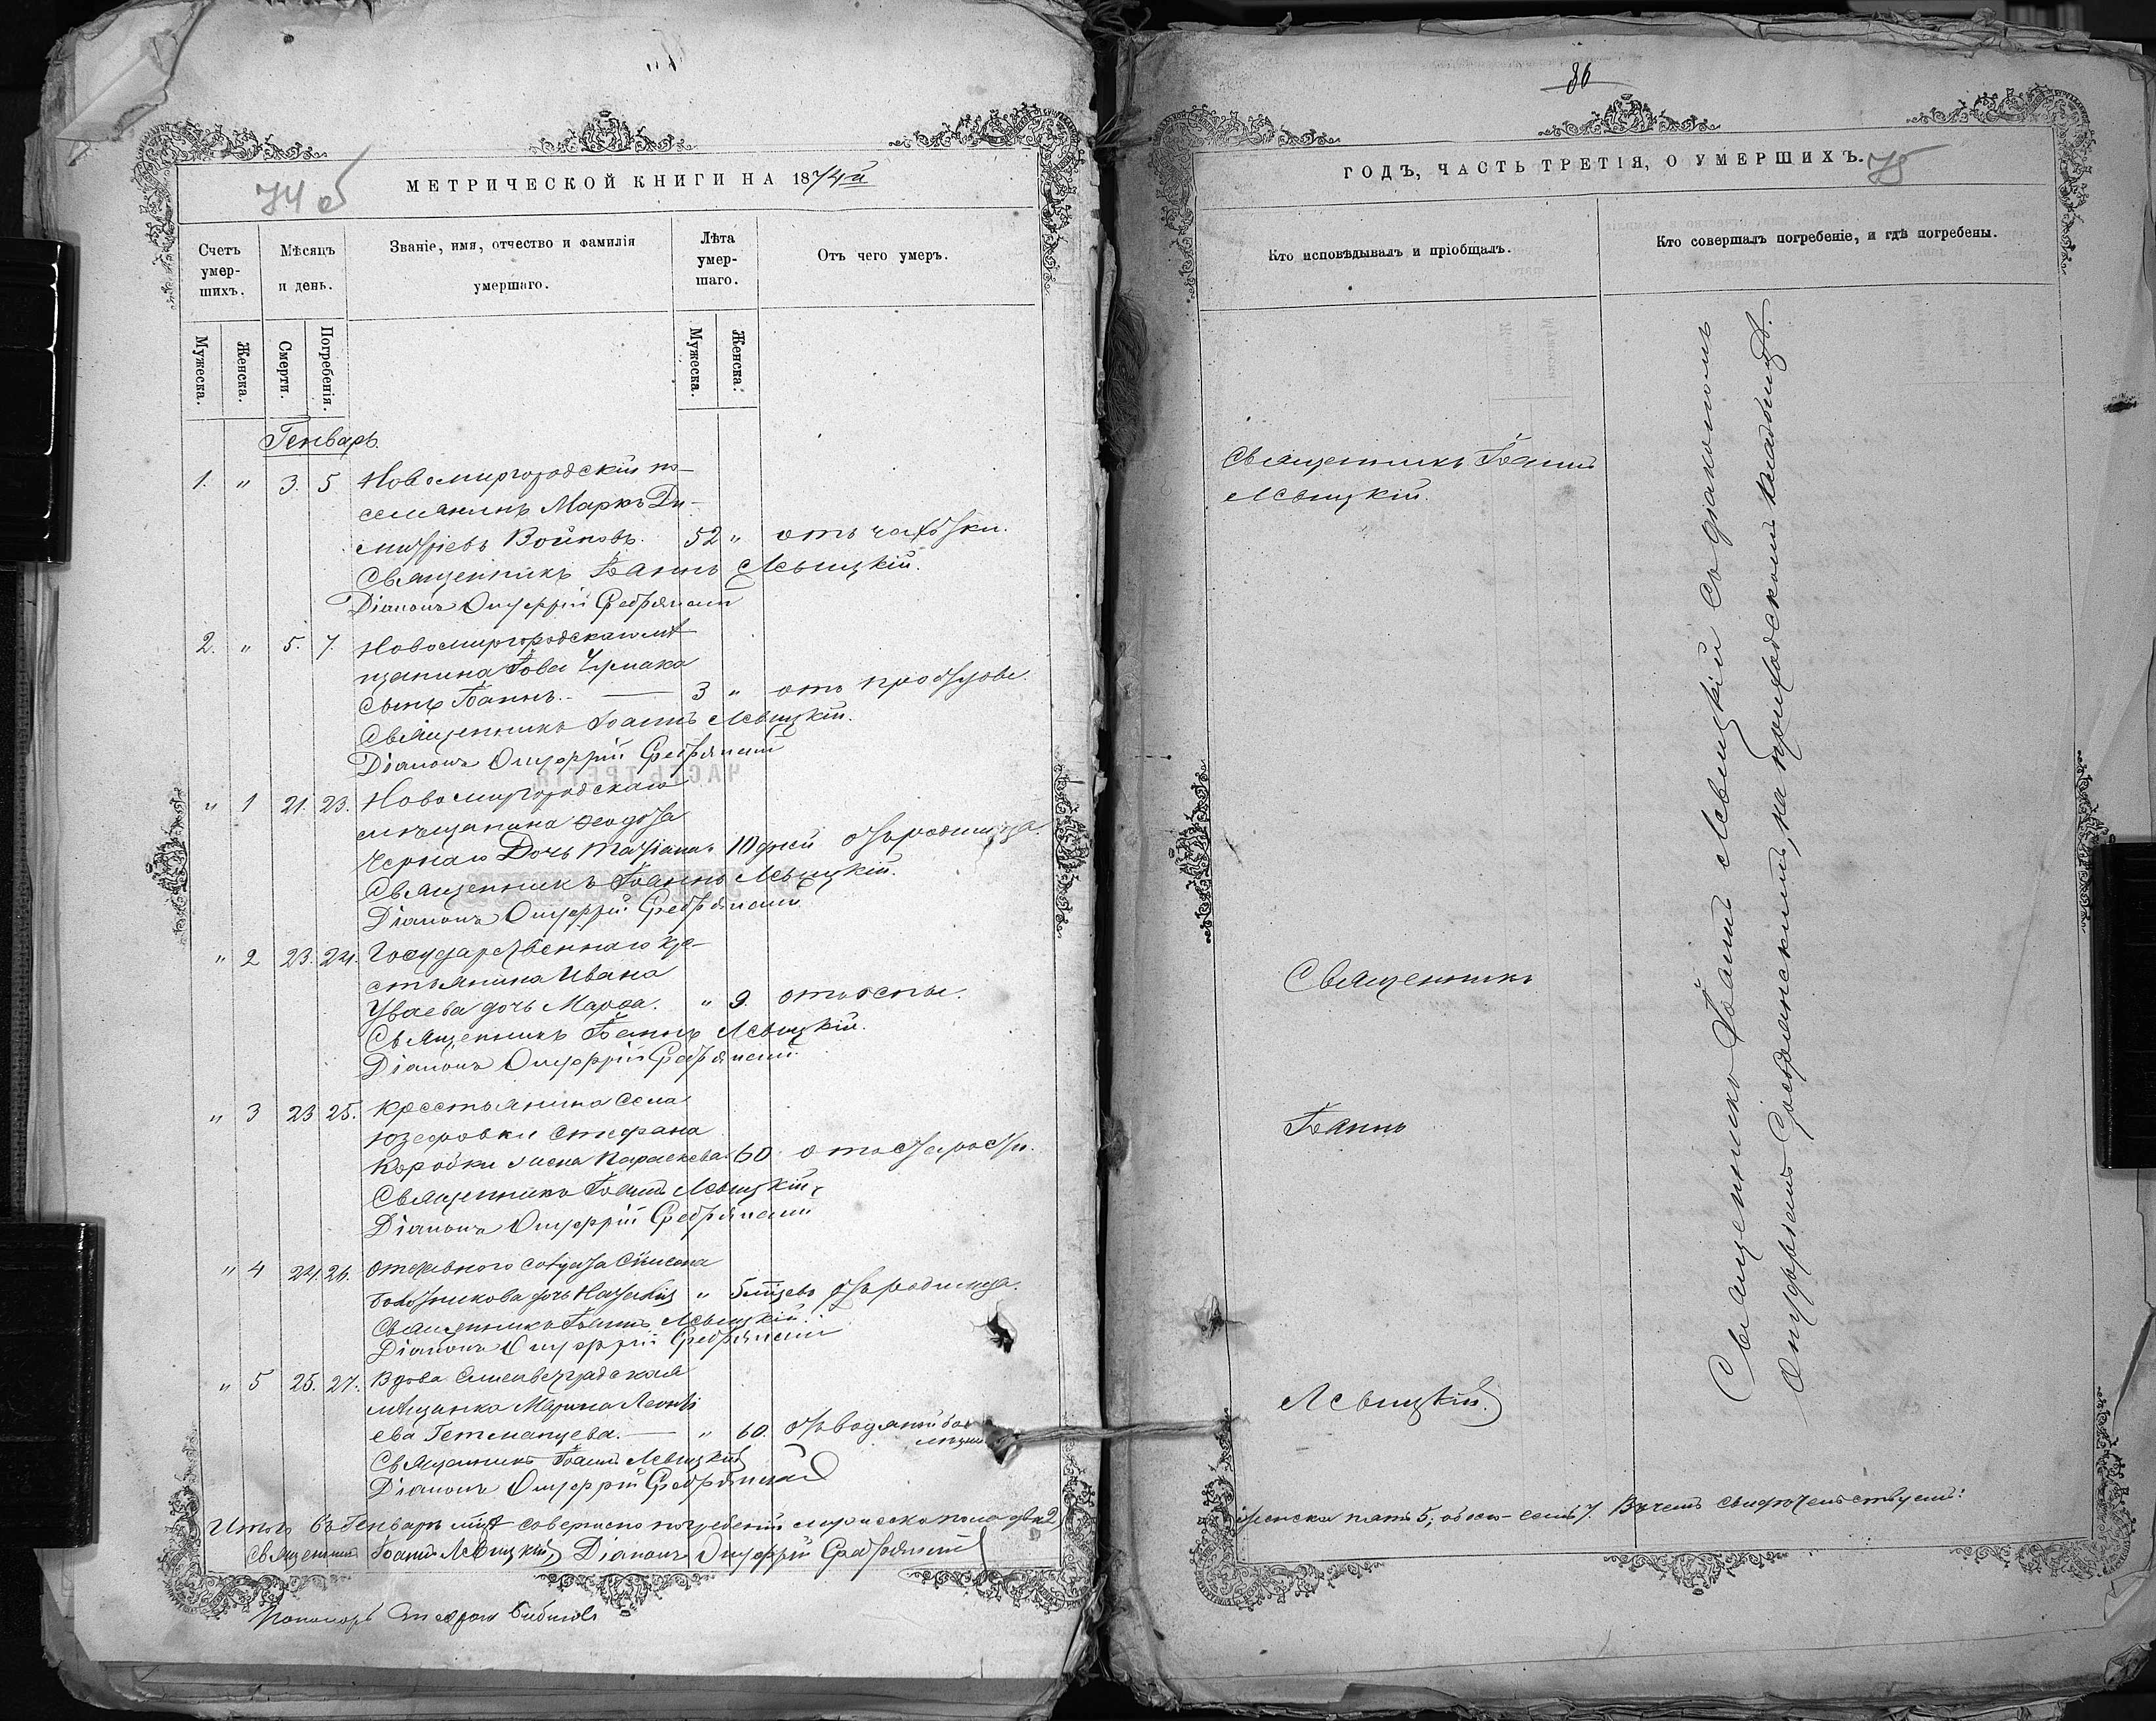 74 об
МЕТРИЧЕСКОЙ КНИГИ НА 1874й
Счетъ умер-шихъ.
Мѣсяцъ и день.
Званіе, имя, отчество и фамилія умершаго.
Лѣта умер-шаго.
Отъ чего умеръ.
Мужеска.
Женска.
Смерти.
Погребенія.
Мужеска.
Женска.
Генварь
1. " 3. 5 Новомиргородскій по-
селянинъ Маркъ Ди-
митріевъ Войновъ. 52 " отъ чахотки.
Священникъ Іоаннъ Левицкій.
Діаконъ Онуфрій
2. " 5. 7. Новомиргородскаго мѣ
щанина Іова Чумака
сынъ Іоаннъ. — 3 " отъ простуды.
Священникъ Іоаннъ Левицкій.
Діаконъ Онуфрій
" 1 21. 23. Новомиргородскаго
мѣщанина Ѳеодота
Чернаго дочь Татіана. 10 дней отъ родимца.
Священникъ Іоаннъ Левицкій.
Діаконъ Онуфрій
" 2 23. 24. Государственнаго кре-
стьянина Ивана
дочь Марѳа. " 9. отъ оспы.
Священникъ Іоаннъ Левицкій.
Діаконъ Онуфрій
" 3 23 25. Крестьянина села
Юзефовки Стефана
Коробки жена Параскева 60 отъ старости.
Священникъ Іоаннъ Левицкій.
Діаконъ Онуфрій
" 4 24. 26. Отставного солдата Симеона
дочь Наталія " 5 мѣсяцевъ отъ родимца.
Священникъ Іоаннъ Левицкій.
Діаконъ Онуфрій
" 5 25. 27. Вдова Елисаветградская
мѣщанка Марина Леонть
ева Гетманцева. — " 60. отъ водяной бо
лѣзни
Священникъ Іоаннъ Левицкій
Діаконъ Онуфрій
Итого въ Генварѣ м-цѣ совершено погребеній мужеска пола два 2,
Священникъ Іоаннъ Левицкій, Діаконъ Онуфрій
Пономарь Стефанъ
86
ГОДЪ, ЧАСТЬ ТРЕТІЯ, О УМЕРШИХЪ.
75
Кто исповѣдывалъ и пріобщалъ.
Кто совершалъ погребеніе, и гдѣ погребены.
Священникъ Іоаннъ
Левицкій.
Священникъ
Іоаннъ
Левицкій.
Священникъ Іоаннъ Левицкій со діакономъ
Онуфріемъ на приходскомъ кладбищѣ.
женска пять 5, обоего семь 7. В чемъ свидѣтельствуемъ: